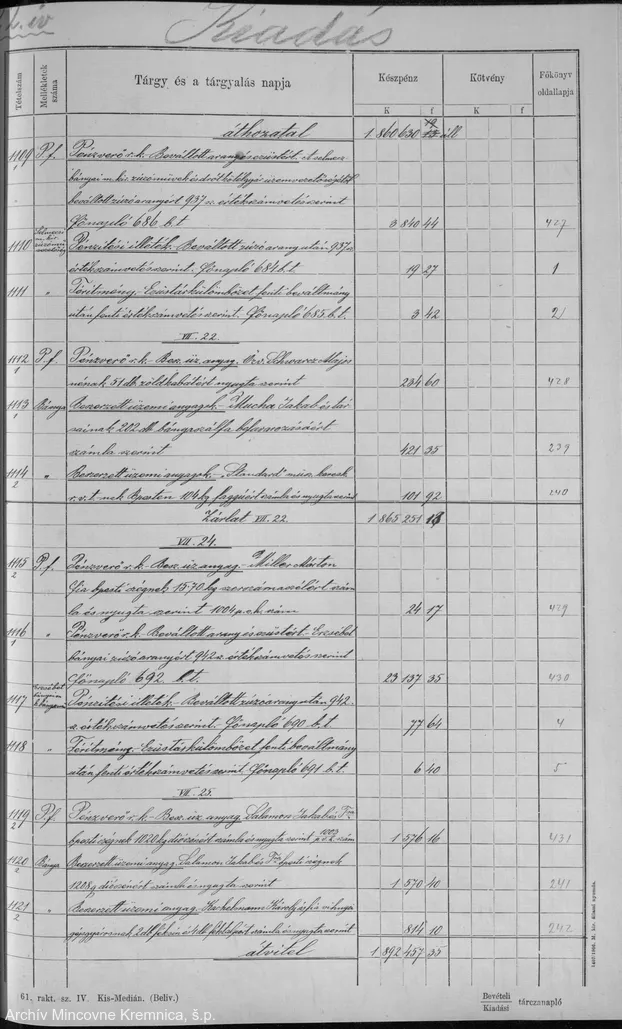 Kiadás
Tételszám
Mellékletek száma
Tárgy és a tárgyalás napja
Készpénz
Kötvény
Főkönyv oldallapja
K f K f
áthozatal 1 860 630
1109 P.f. Pénzverő r.k. Beváltott arany és ezüstért. A selmecz
bányai m. kir. zúzóművek és
beváltott zúzóaranyért 937 sz. értékszámvetés szerint
Főnapló 686 b.t 3 840 44 427
1110 Pénzitési illeték. Beváltott zúzóarany után 937 sz
értékszámvetés szerint. Főnapló 684 b.t. 19 27 1
1111 " Térítmény. Ezüstárkülömbözet fenti beváltmány
után fenti értékszámvetés szerint. Főnapló 685 b.t. 3 42 2
VII. 22.
1112 P.f. Pénzverő r.k. Besz. üz. anyag. Özv. Schwarcz Majer
nének 51 db zöldkabátért nyugta szerint 234 60 428
1113 Bánya Beszerzett üzemi anyagok. Mucha Jakab és tár
sainak 202 db bányaszálfa szerint
számla szerint 421 35 239
1114 " Beszerzett üzemi anyagok. "Standard" műsz. keresk
r.v.t. nek Bpesten 104 kg faggyúért számla és nyugta szerint 101 92 240
Zárlat VII. 22. 1 865 251 13
VII. 24.
1115 P.f. Pénzverő r.k. Besz. üz. anyag. Miller Márton
fia bpesti cégnek 15.70 kg szerszámacélért szám
la és nyugta szerint 1004 p.v.h. szám 24 17 429
1116 " Pénzverő r.k. Beváltott arany és ezüstért. Erzsébet
bányai zúzóaranyért 942 sz. értékszámvetés szerint
Főnapló 692 b.t. 23 137 35 430
1117 Pénzitési illeték. Beváltott zúzóarany után 942
sz. értékszámvetés szerint. Főnapló 690 b.t 77 64 4
1118 " Térítmény. Ezüstárkülömbözet fenti beváltmány
után fenti értékszámvetés szerint Főnapló 691 b.t. 6 40 5
VII. 25.
1119 P.f. Pénzverő r.k. Besz. üz. anyag. Salamon Jakab és
bpesti cégnek 1020 kg számla és nyugta szerint 1 576 16 431
1120 Bánya Beszerzett üzemi anyag. Salamon Jakab és bpesti cégnek
számla és nyugta szerint 1 570 40 241
1121 " Beszerzett üzemi anyag. Károly és fia vihnyei
gépgyárosnak számla és nyugta szerint 814 10 242
átvitel 1 892 457 35
61. rakt. sz. IV. Kis-Medián. (Belív.)
Bevételi
Kiadási tárczanapló
Archív Mincovne Kremnica, š.p.